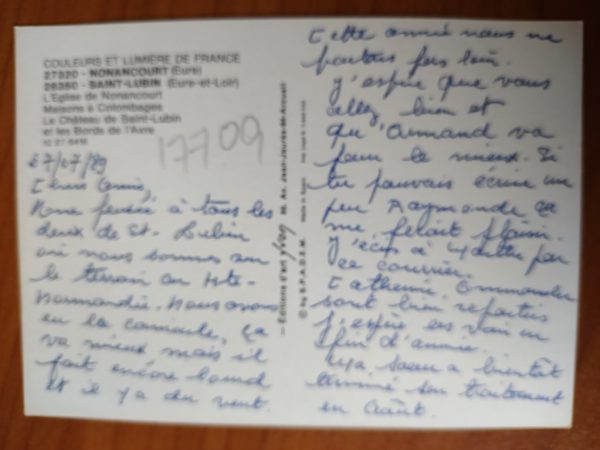 COULEURS ET LUMIÈRE DE FRANCE
27320 - NONANCOURT (Eure)
28350 - SAINT-LUBIN (Eure-et-Loir)
L'Eglise de Nonancourt
Maisons à Colombages
Le Château de Saint-Lubin
et les Bords de l'Avre
17709
27/07/89
Chers Amis,
Bonne pensée à tous les
deux de St-Lubin
où nous sommes sur
le terrain en Hte-
Normandie. Nous avons
eu la canicule, ça
va mieux mais il
fait encore lourd
et il y a du vent.
Editions d'art yvon
Av. Jean-Jaurès, 94-Arcueil
© by S.P.A.D.E.M. Made in
Cette année nous ne
partons pas loin.
J'espère que vous
allez bien et
qu'Armand va
pour le mieux. Si
tu pouvais écrire un
peu Raymonde ça
me ferait plaisir.
J'écris à par
ce courrier.
Catherine,
sont bien repartis
j'espère les voir en
fin d'année.
Ma soeur a bientôt
terminé son traitement
en Août.